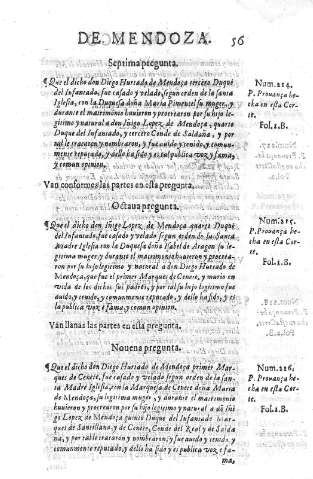 DE MENDOZA. 56
Septima pregunta.
¶Que el dicho don Diego Hurtado de Mendoza tercero Duque
del Infantado, fue casado y velado, segun orden de la santa
Iglesia, con la Duquesa doña Maria Pimentel su muger, y
durante el matrimonio huuieron y procrearon por su hijo le-
gitimo y natural a don Iñigo Lopez de Mendoza, quarto
Duque del Infantado, y tercero Conde de Saldaña, y por
tal le trataron y nombraron, y fue auido y tenido, y comun-
mente reputado, y dello ha sido y es tal publica voz y fama,
y comun opinion.
Num. 214.
P. Prouança he-
cha en esta Cor-
te.
Fol. 1. B.
Van conformes las partes en esta pregunta.
Octaua pregunta.
¶Que el dicho don Iñigo Lopez de Mendoza quarto Duque
del Infantado, fue casado y velado segun orden de la Santa
Madre Iglesia con la Duquesa doña Isabel de Aragon su le-
gitima muger y durante el matrimonio huuieron y procrea-
ron por su hijo legitimo y natural a don Diego Hurtado de
Mendoza, que fue el primer Marques de Cenete, y murio en
vida de los dichos sus padres, y por tal su hijo legitimo fue
auido, y tenido, y comunmente reputado, y dello ha sido, y es
la publica voz e fama, e comun opinion.
Num. 215.
P. Prouança he-
cha en esta Cor-
te.
Fol. 1. B.
Van llanas las partes en esta pregunta.
Nouena pregunta.
¶Que el dicho don Diego Hurtado de Mendoza primer Mar-
ques de Cenete, fue casado, y velado segun orden de la san-
ta Madre Iglesia, con la Marquesa de Cenete doña Maria
de Mendoza, su legitima muger, y durante el matrimonio
huuieron y procrearon por su hijo legitimo y natural a dõ Iñi
go Lopez de Mendoza quinto Duque del Infantado Mar-
ques de Santillana, y de Cenete, Conde del Real y de Salda
ña, y por tal le trataron y nombraron, y fue auido y tenido, y
comunmente reputado, y dello ha sido y es publica voz e fa-
ma,
Num. 216.
P. Prouança he-
cha en esta Cor-
te.
Fol. 1. B.